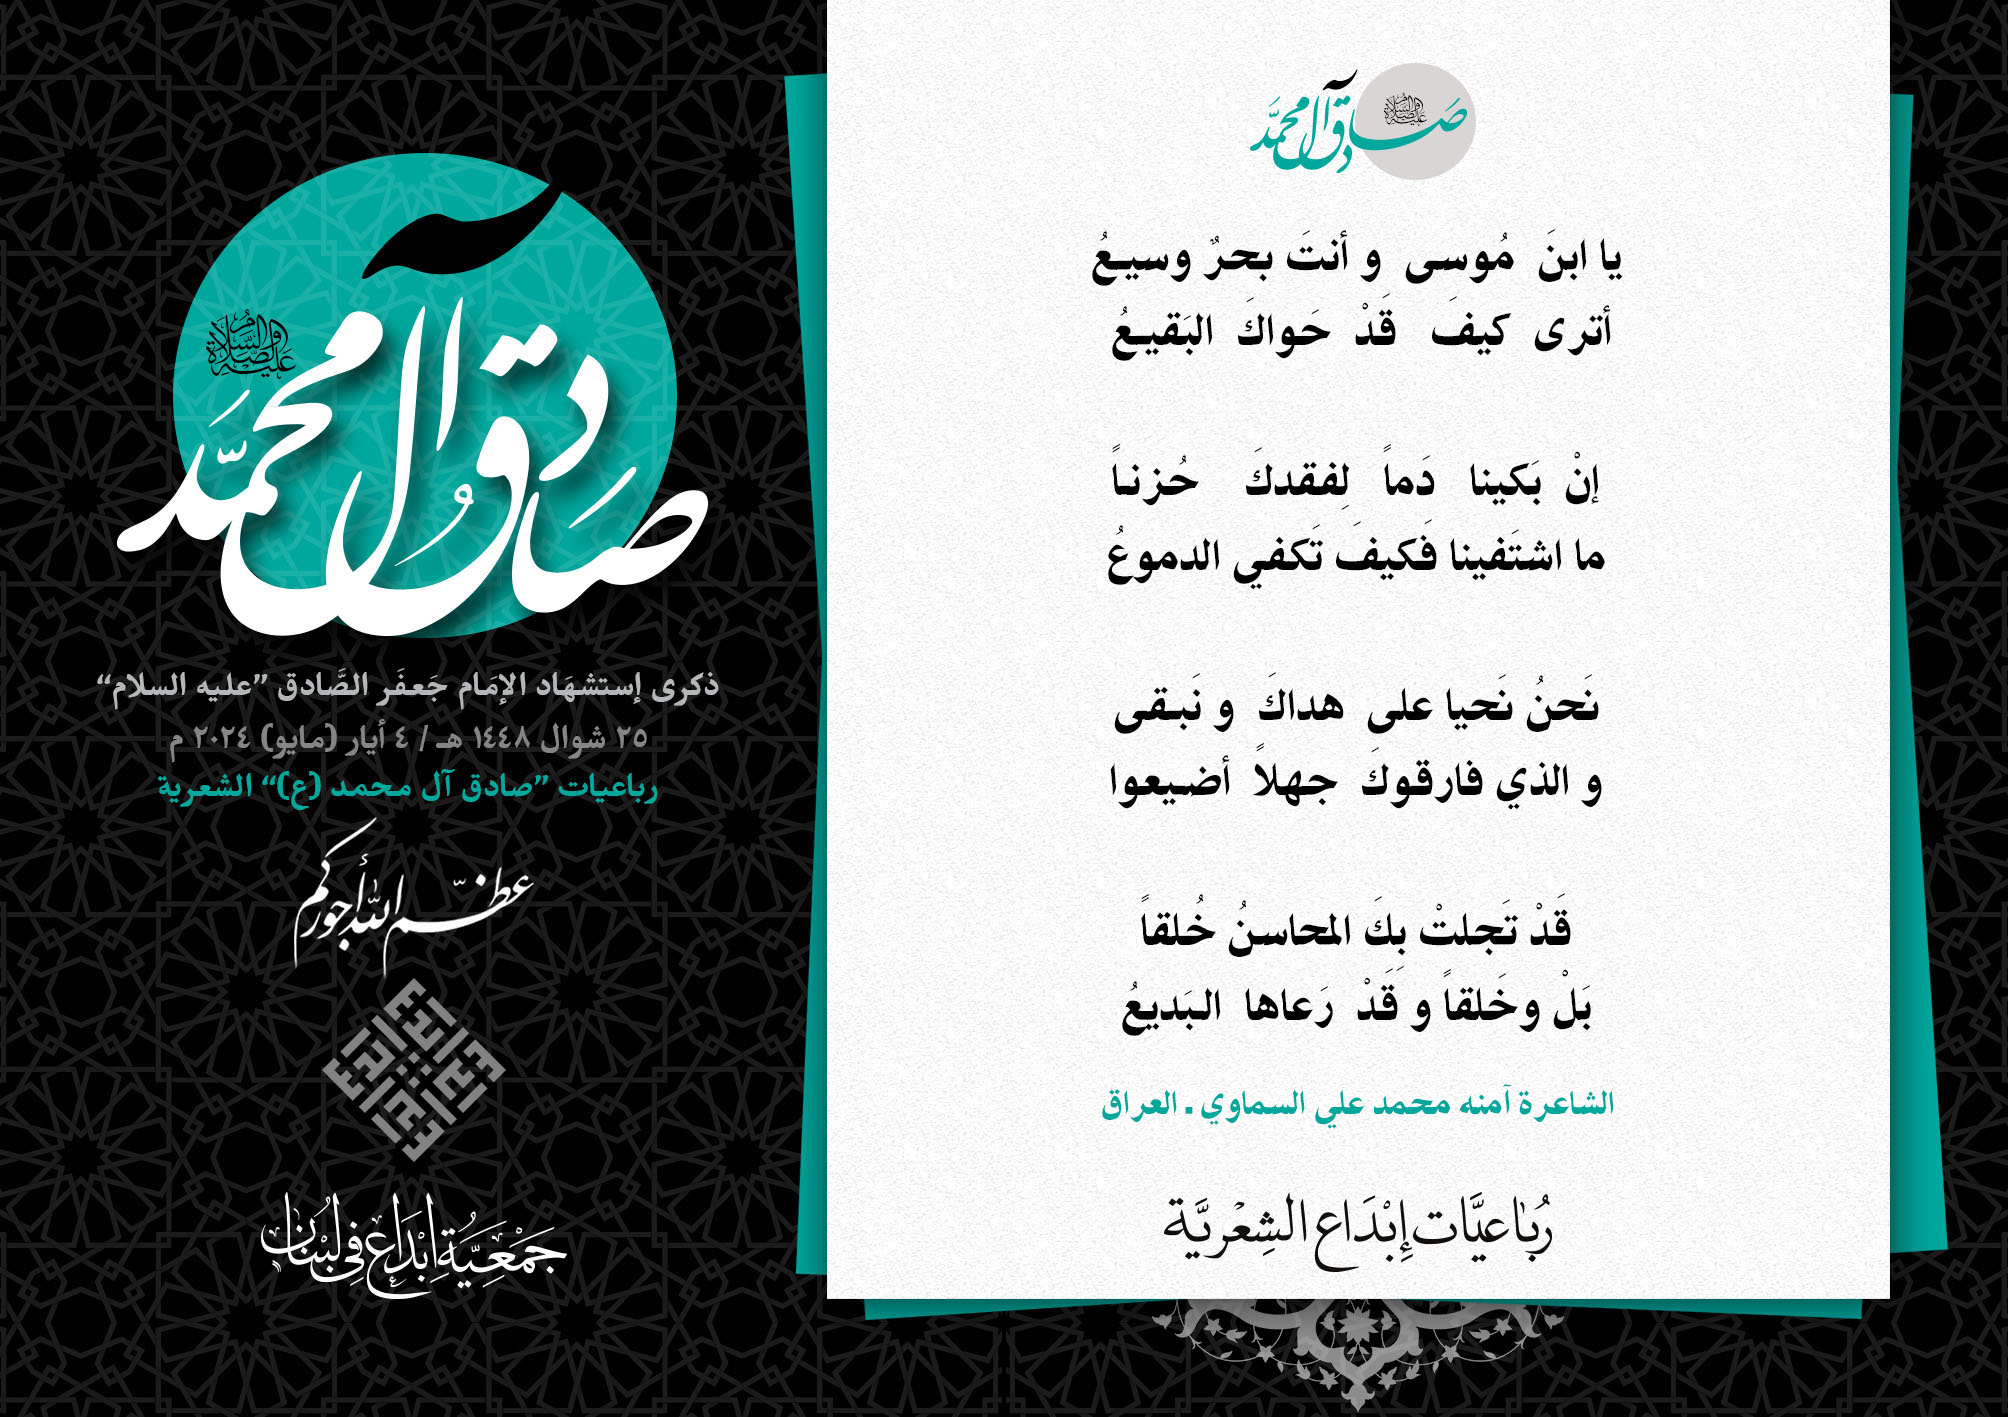 صادق آل محمد
عليه الصلاة والسلام
يا ابنَ مُوسى و أنتَ بحرٌ وسيعُ
أترى كيفَ قَدْ حَواكَ البَقيعُ
إنْ بَكينا دَماً لِفقدكَ حُزناً
ما اشتَفينا فَكيفَ تَكفي الدموعُ
نَحنُ نَحيا على هداكَ و نَبقى
و الذي فارقوكَ جهلاً أضيعوا
قَدْ تَجلتْ بِكَ المحاسنُ خُلقاً
بَلْ وخَلقاً و قَدْ رَعاها البَديعُ
الشاعرة آمنه محمد علي السماوي . العراق
رُبَاعيَّات إِبْدَاع الشِعْريَّة
صَادِق آل محمَّد
عليه الصلاة والسلام
ذكرى إستشهَاد الإمَام جَعفَر الصَّادق ”عليه السلام“
٢٥ شوال ١٤٤٨ هـ / ٤ أيار (مايو) ٢٠٢٤ م
رباعيات ”صادق آل محمد (ع)“ الشعرية
عظّم الله أجوركم
جَمْعِيَّةُ إِبْدَاع فِي لُبْنَان